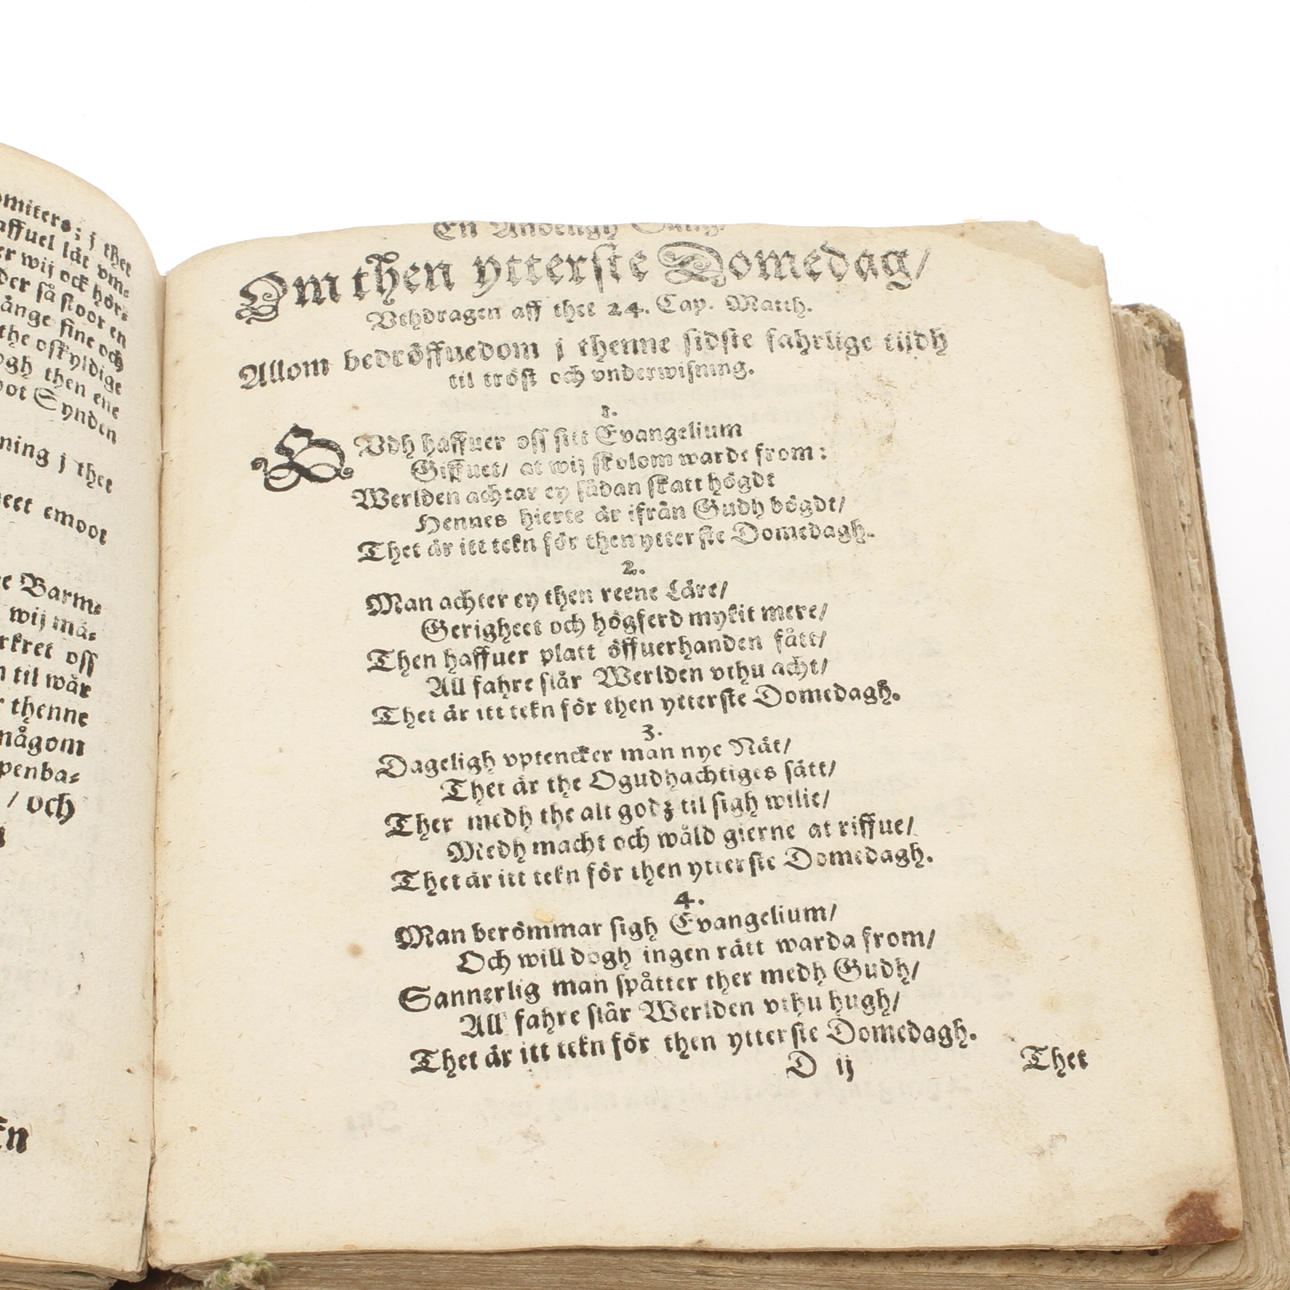 omiters; j thet
affuel lät vm⸗
er wij ock hör⸗
der så stoor en
ånge sine och
the oskyldige
ogh then ene
oot Synden
ning j thet
eet emoot
e Barm⸗
wij mä⸗
rkret oss
n til wår
r thenne
någom
penba⸗
/ och
En Andeligh
Om then ytterste Domedag/
Vthdragen aff thet 24. Cap. Matth.
Allom bedröffuedom j thenne sidste fahrlige tijdh
til tröst och vnderwisning.
1.
GVdh haffuer oss sitt Evangelium
Giffuet/ at wij skolom warde from:
Werlden achtar ey sådan skatt högdt
Hennes hierte är ifrån Gudh bögdt/
Thet är itt tekn för then ytterste Domedagh.
2.
Man achter ey then reene Läre/
Gerigheet och högferd mykit mere/
Then haffuer platt öffuerhanden fått/
All fahre slår Werlden vthu acht/
Thet är itt tekn för then ytterste Domedagh.
3.
Dageligh vptencker man nye Nät/
Thet är the Ogudhachtiges sätt/
Ther medh the alt godz til sigh wilie/
Medh macht och wåld gierne at riffue/
Thet är itt tekn för then ytterste Domedagh.
4.
Man berömmar sigh Evangelium/
Och will dogh ingen rätt warda from/
Sannerlig man spåtter ther medh Gudh/
All fahre slår Werlden vthu hugh/
Thet är itt tekn för then ytterste Domedagh.
D ij
Thet